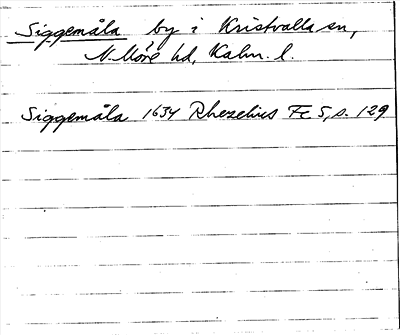 Siggemåla by i Kristvalla sn,
N. Möre hd, Kalm. l.
Siggemåla 1634 Rhezelius Fc 5, s. 129